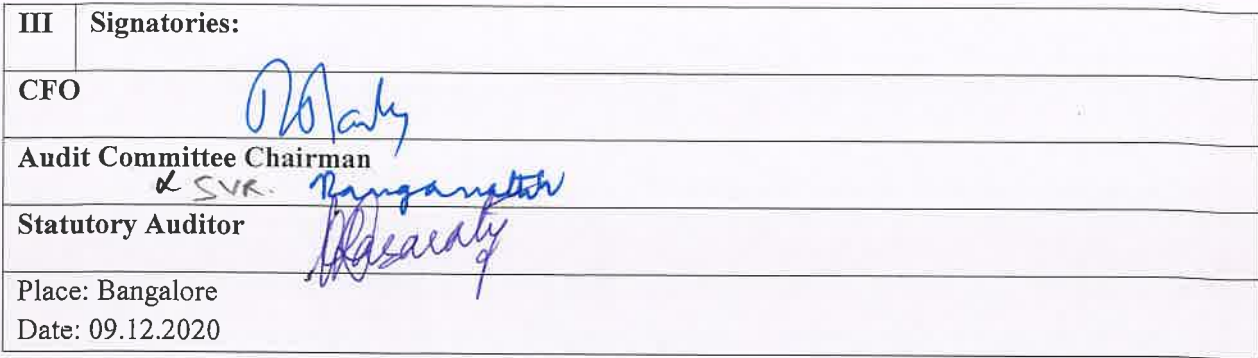 III Signatories:
CFO
Audit Committee Chairman
SVR. Ranganath
Statutory Auditor
Place: Bangalore
Date: 09.12.2020